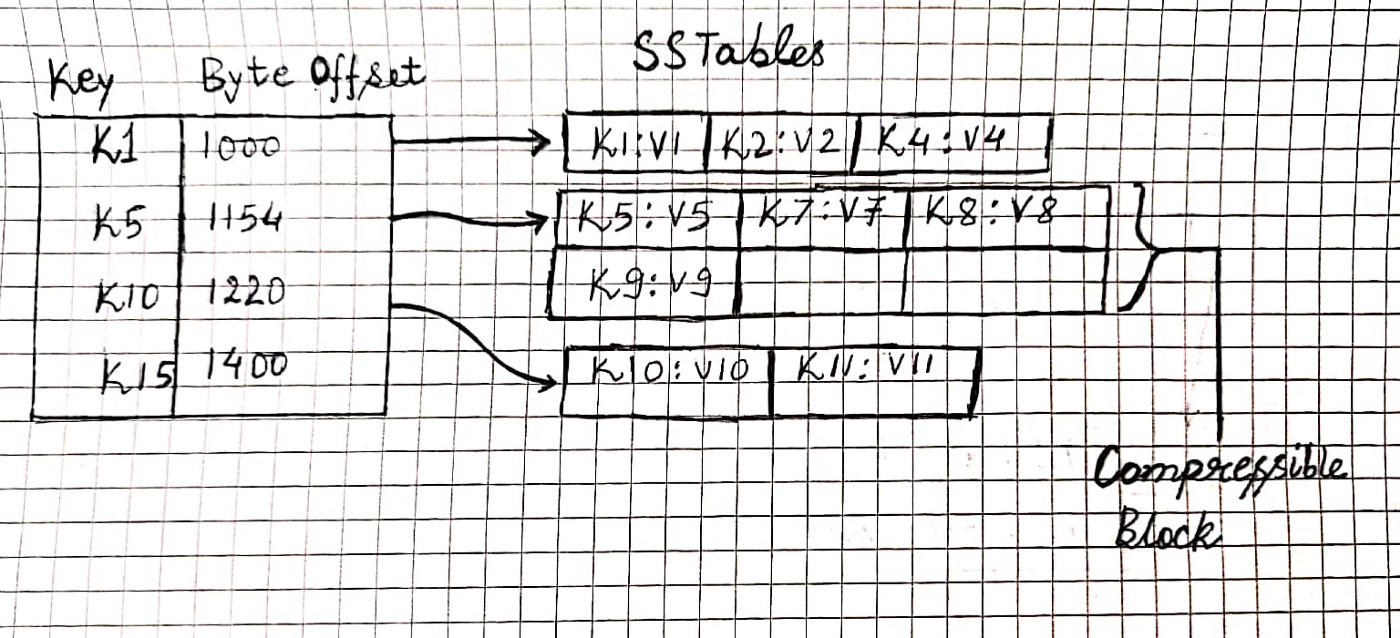 SSTables
Key Byte Offset
K1 1000
K5 1154
K10 1220
K15 1400
K1:V1 K2:V2 K4:V4
K5:V5 K7:V7 K8:V8
K9:V9
K10:V10 K11:V11
Compressible
Block